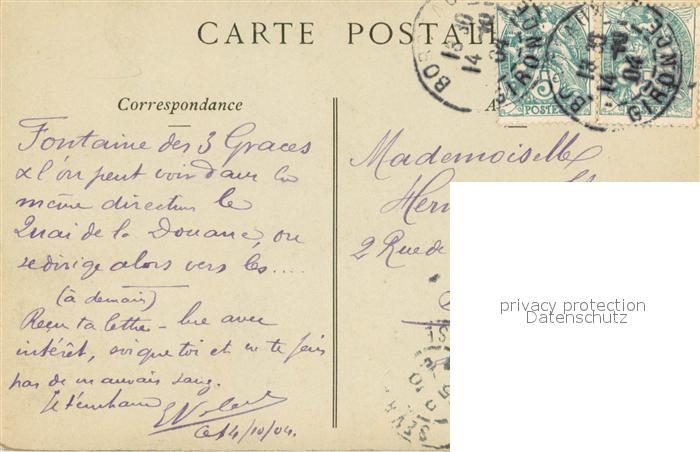 CARTE POSTALE
BORDEAUX
GIRONDE
14 10 04
5
POSTES
BO
GIRONDE
14 04
Correspondance
A
Fontaine des 3 Graces
& l'on peut voir dans la
même direction le
Quai de la Douane, on
se dirige alors vers les....
(à demain)
Reçu ta lettre - lue avec
intérêt, soigne toi et ne te fais
pas de mauvais sang.
Je t'embrasse
ce 14/10/04.
Mademoiselle
Hen
2 Rue de
privacy protection
Datenschutz